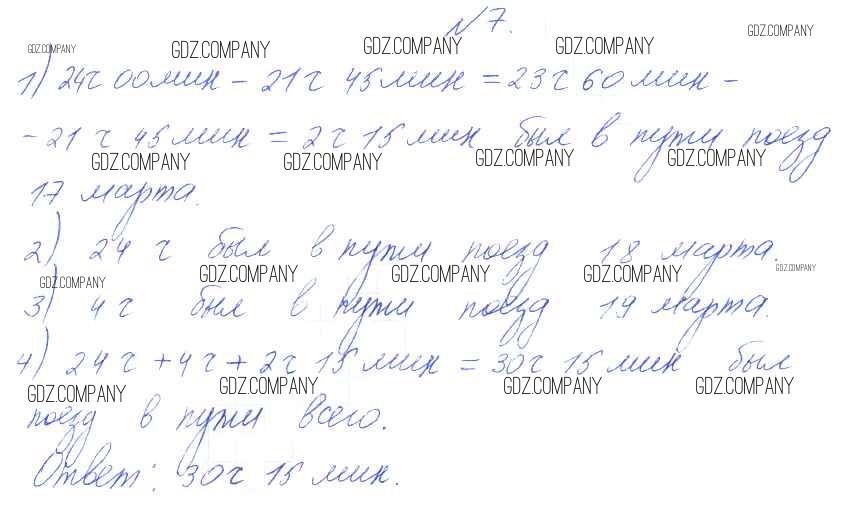 № 7.
GDZ.COMPANY GDZ.COMPANY GDZ.COMPANY GDZ.COMPANY GDZ.COMPANY
1) 24ч 00мин - 21ч 45мин = 23ч 60мин -
- 21ч 45мин = 2ч 15мин был в пути поезд
GDZ.COMPANY GDZ.COMPANY GDZ.COMPANY GDZ.COMPANY
17 марта.
2) 24 ч был в пути поезд 18 марта.
GDZ.COMPANY GDZ.COMPANY GDZ.COMPANY GDZ.COMPANY GDZ.COMPANY
3) 4ч был в пути поезд 19 марта.
4) 24ч + 4ч + 2ч 15мин = 30ч 15мин был
GDZ.COMPANY GDZ.COMPANY GDZ.COMPANY GDZ.COMPANY
поезд в пути всего.
Ответ: 30ч 15 мин.